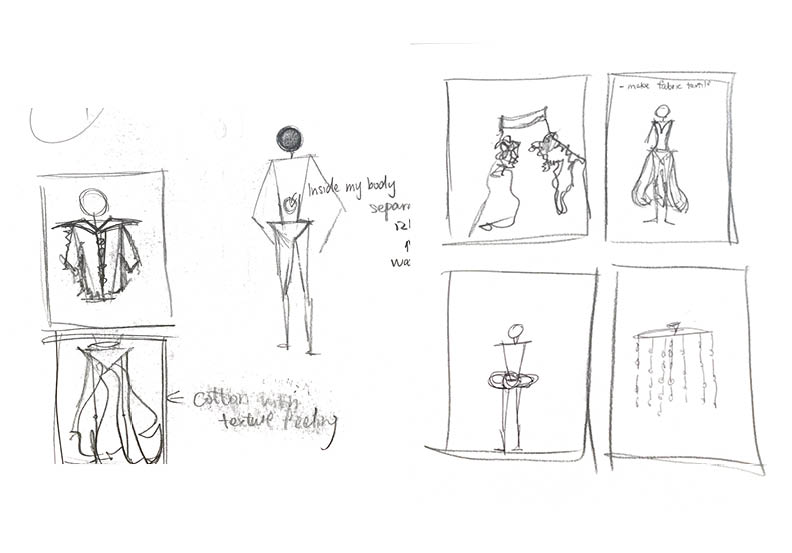 Inside my body
separ
wa
Cotton with
texture feeling
- make fabric textile